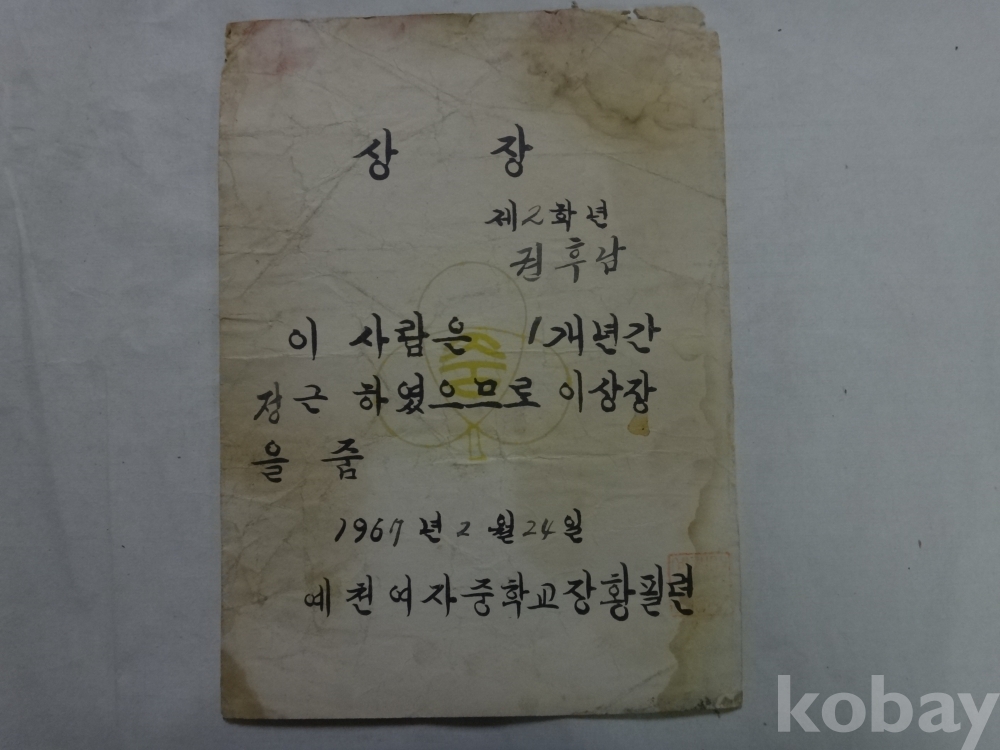 상 장
제2학년
권후남
이 사람은 1개년간
정근 하였으므로 이상장
을 줌
1967년 2월 24일
예천여자중학교장 황필련
중
kobay